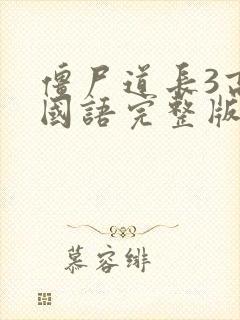 僵尸道長3高
國語完整版
慕容緋